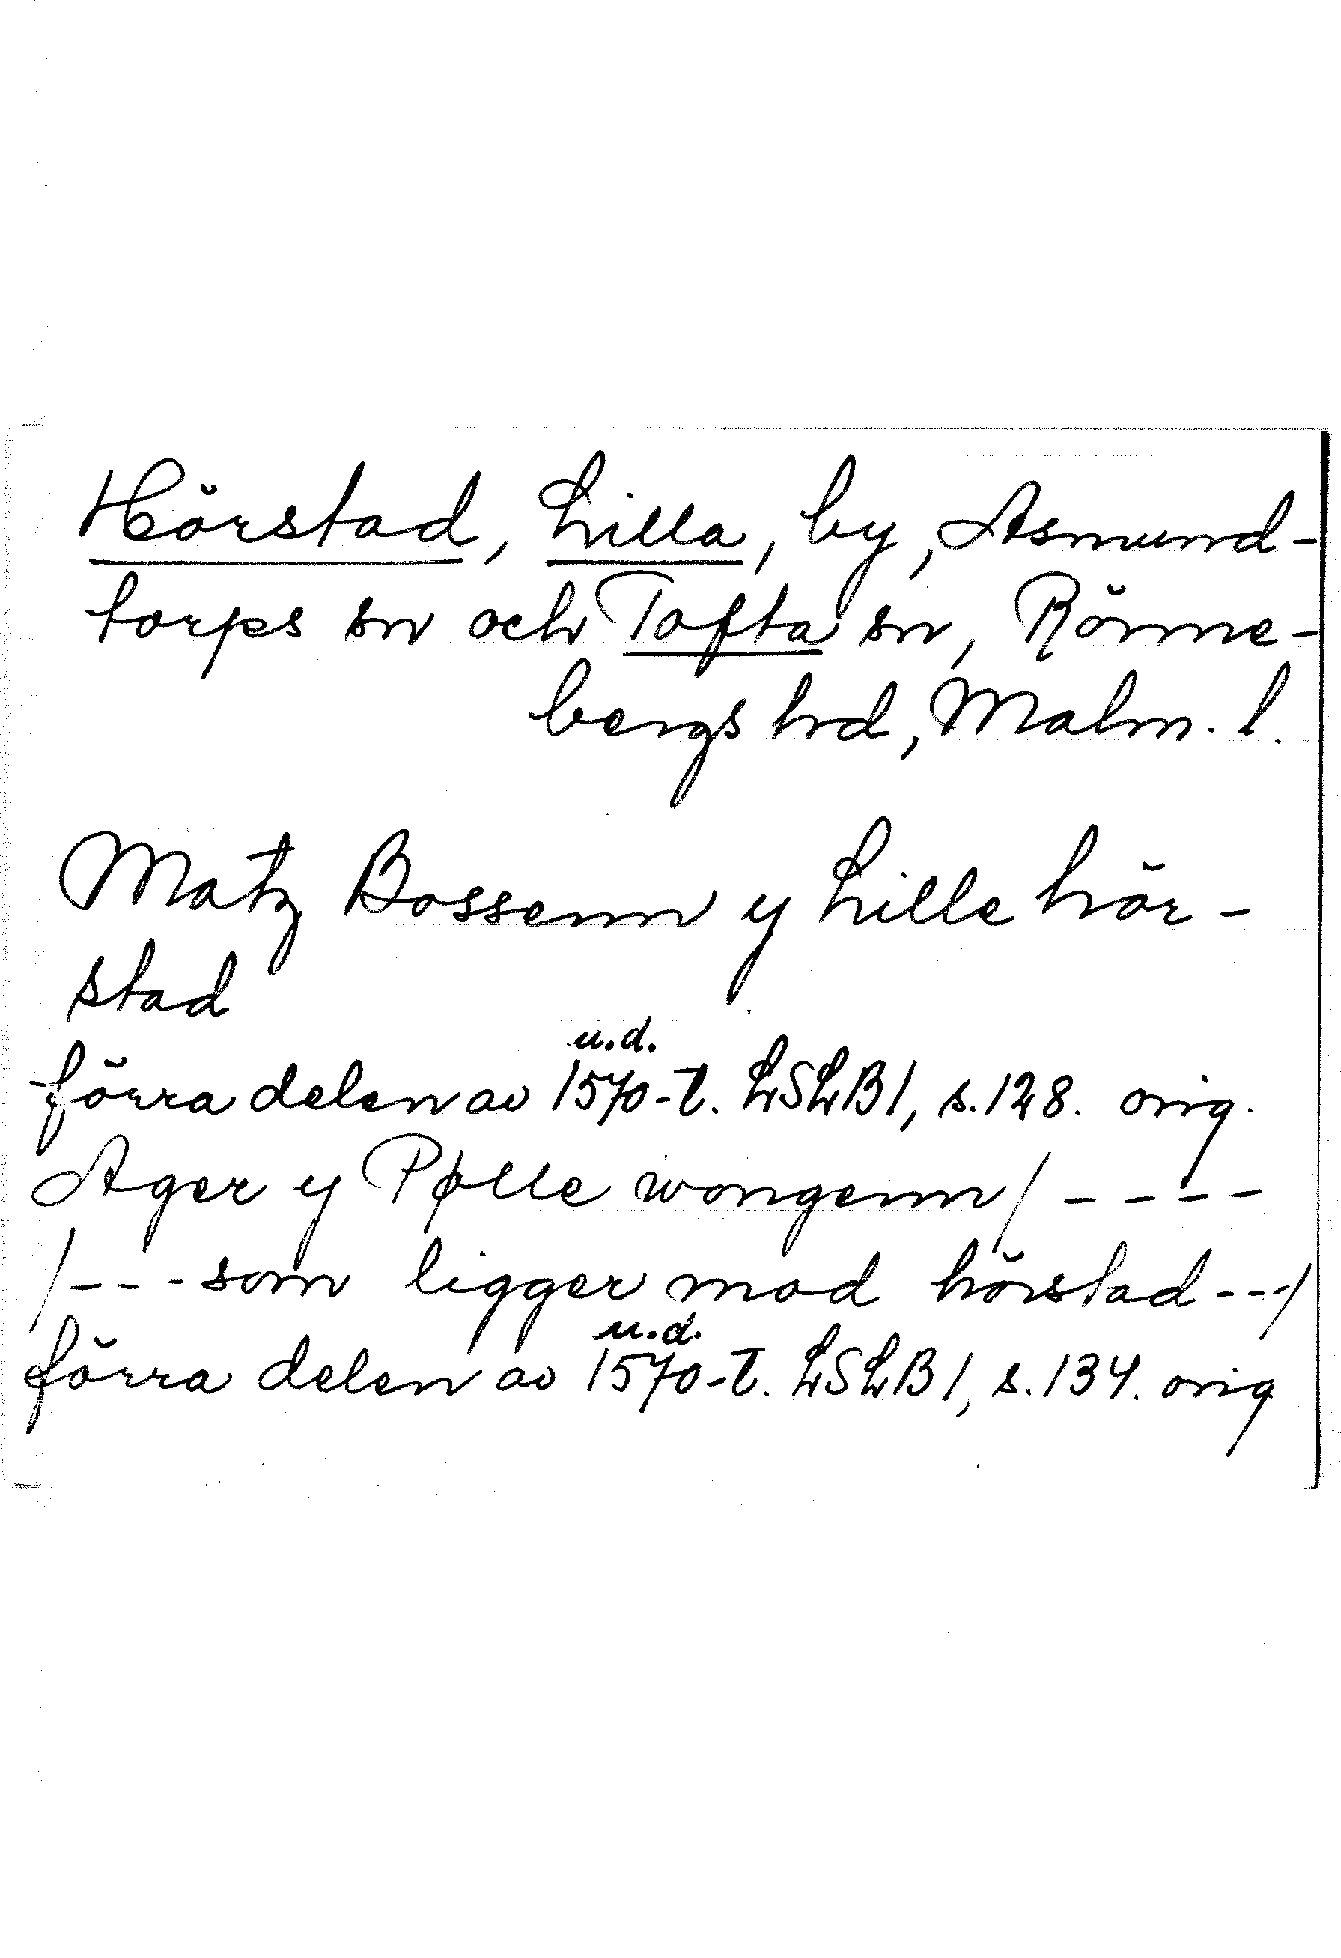 Hörstad, Lilla, by, Asmund-
torps sn och Tofta sn, Rönne-
bergs hrd, Malm. l.
Matz Bossenn y Lille hör-
stad
u.d.
förra delen av 1570-t. LSLB1, s. 128. orig.
Ager y Pølle wongenn/ - - - -
/- - - som ligger mod hörstad - - -/
u.d.
förra delen av 1570-t. LSLB1, s. 134. orig